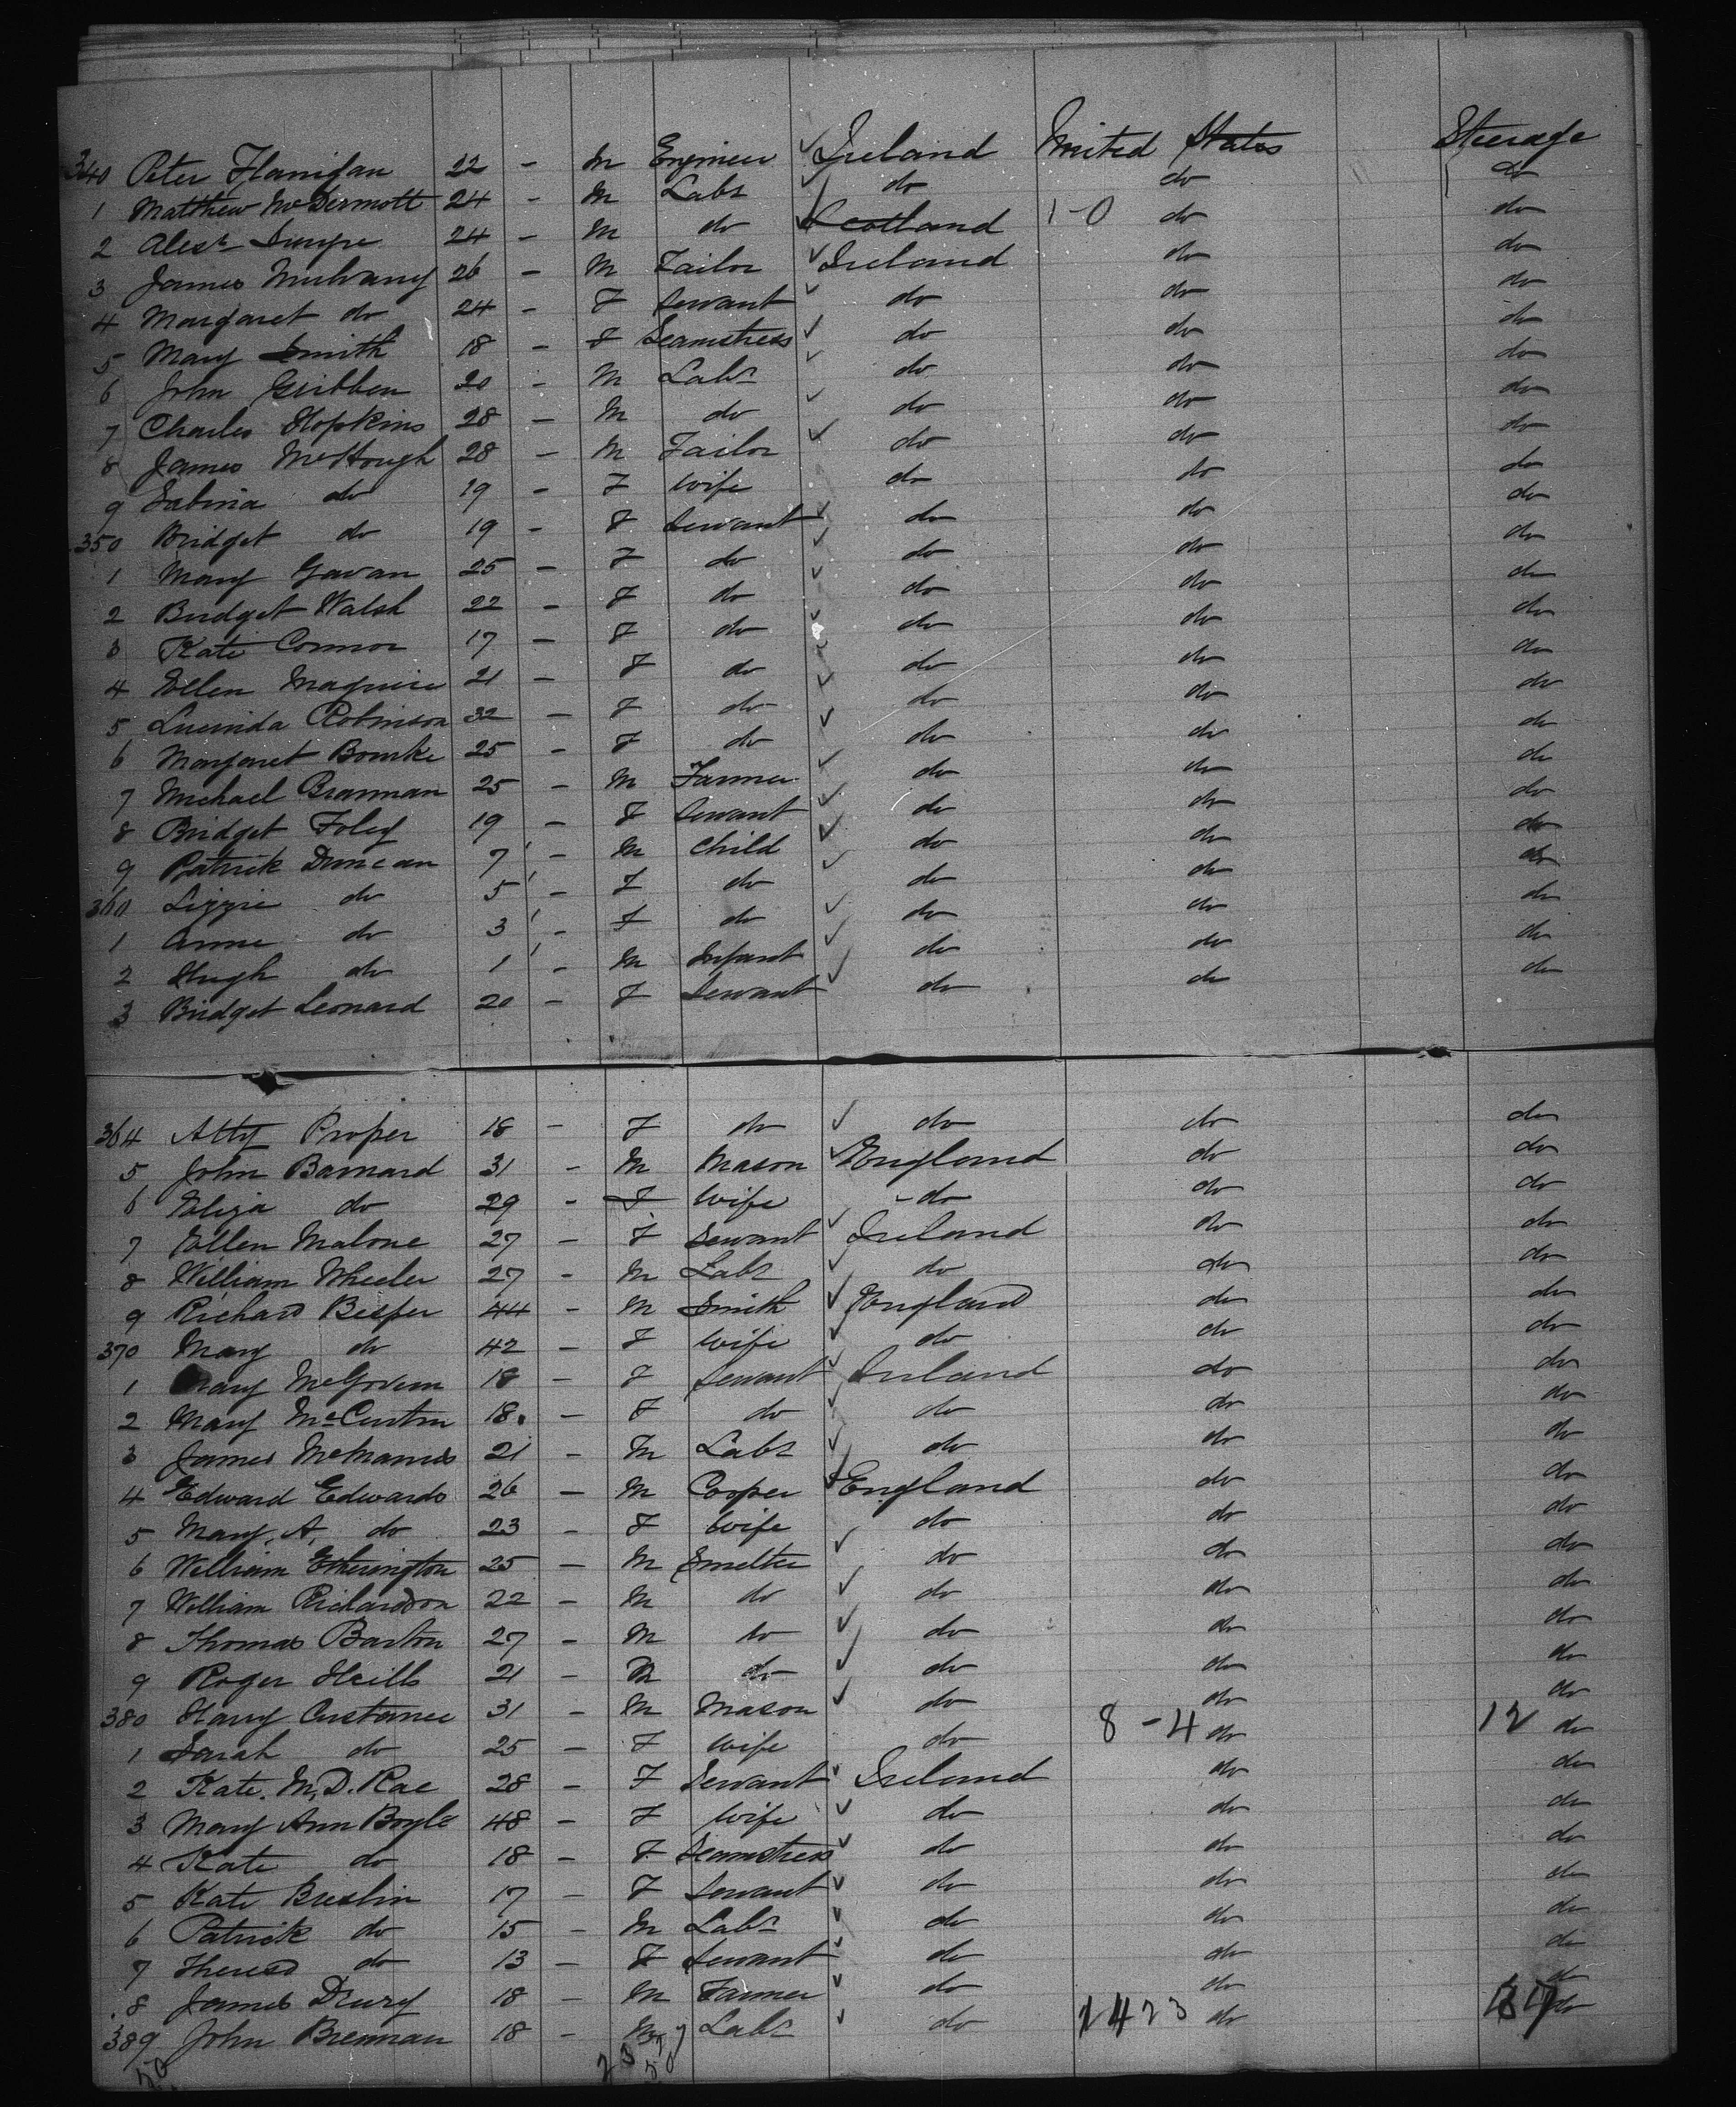 340 Peter Flanigan 22 - M Engineer ✓ Ireland United States Steerage
1 Matthew McDermott 24 - M Labr ✓ do do do
2 Alexr 24 - M do ✓ Scotland 1-0 do do
3 James Mulvany 26 - M Tailor ✓ Ireland do do
4 Margaret do 24 - F Servant ✓ do do do
5 Mary Smith 18 - F Seamstress ✓ do do do
6 John Gribben 20 - M Labr ✓ do do do
7 Charles Hopkins 28 - M do ✓ do do do
8 James McHough 28 - M Tailor ✓ do do do
9 Sabina do 19 - F Wife do do do
350 Bridget do 19 - F Servant ✓ do do do
1 Mary Gavan 25 - F do ✓ do do do
2 Bridget Walsh 22 - F do ✓ do do do
3 Kate Connor 17 - F do ✓ do do do
4 Ellen Maguire 21 - F do ✓ do do do
5 Lucinda Robinson 32 - F do ✓ do do do
6 Margaret Bourke 25 - F do ✓ do do do
7 Michael Brannan 25 - M Farmer ✓ do do do
8 Bridget Foley 19 - F Servant ✓ do do do
9 Patrick Duncan 7 - M Child ✓ do do do
360 Lizzie do 5 - F do ✓ do do do
1 Anne do 3 - F do ✓ do do do
2 Hugh do 1 - M Infant ✓ do do do
3 Bridget Leonard 20 - F Servant ✓ do do do
364 Atty Proper 18 - F do ✓ do do do
5 John Barnard 31 - M Mason ✓ England do do
6 Eliza do 29 - F Wife do do do
7 Ellen Malone 27 - F Servant ✓ Ireland do do
8 William Wheeler 27 - M Labr ✓ do do do
9 Richard Besper 44 - M Smith ✓ England do do
370 Mary do 42 - F Wife ✓ do do do
1 Mary McGovern 18 - F Servant ✓ Ireland do do
2 Mary 18 - F do ✓ do do do
3 James McManus 21 - M Labr ✓ do do do
4 Edward Edwards 26 - M Cooper ✓ England do do
5 Mary, A, do 23 - F Wife do do do
6 William Etherington 25 - M Smelter ✓ do do do
7 William Richardson 22 - M do ✓ do do do
8 Thomas Barton 27 - M do ✓ do do do
9 Roger 21 - M do ✓ do do do
380 Harry Custance 31 - M Mason ✓ do do do
1 Sarah do 25 - F Wife do 8-4 do 12 do
2 Kate. M, D. Rae 28 - F Servant ✓ Ireland do do
3 Mary Ann Boyle 48 - F Wife ✓ do do do
4 Kate do 18 - F Seamstress ✓ do do do
5 Kate Breslin 17 - F Servant ✓ do do do
6 Patrick do 15 - M Labr ✓ do do do
7 Theresa do 13 - F Servant ✓ do do do
8 James Drury 18 - M Farmer ✓ do do do
389 John Brennan 18 - M Labr ✓ do do do
50